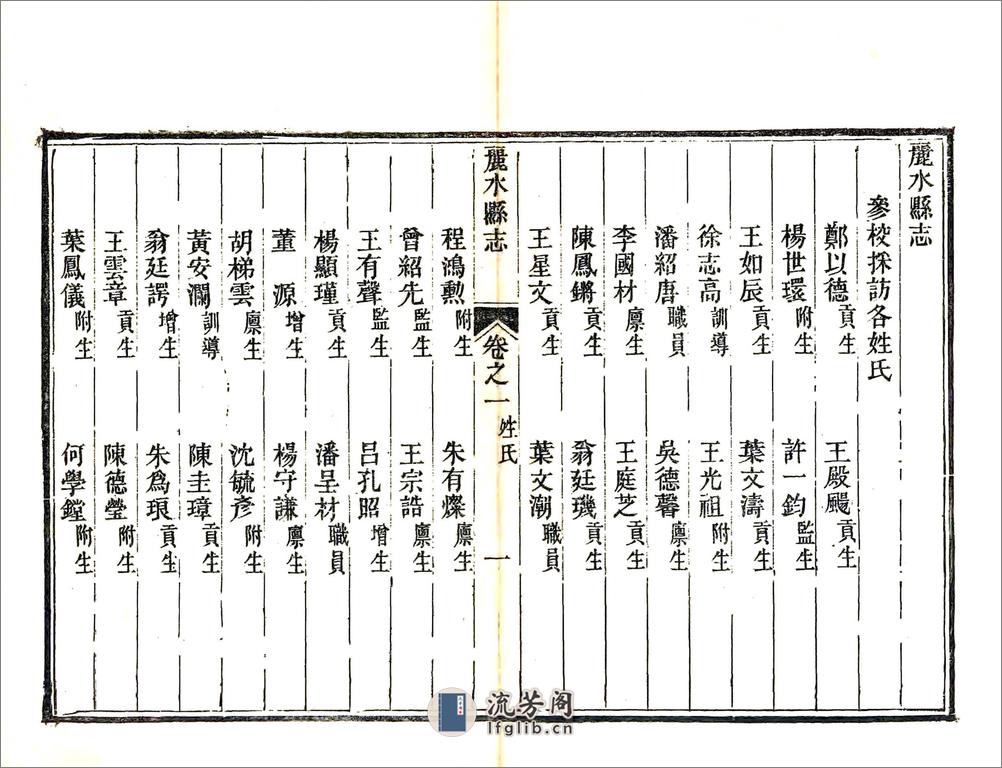 麗水縣志
參校採訪各姓氏
鄭以德貢生　王殿颺貢生
楊世環附生　許一鈞監生
王如辰貢生　葉文濤貢生
徐志高訓導　王光祖附生
潘紹唐職員　吳德馨廪生
李國材廪生　王庭芝貢生
陳鳳鏘貢生　翁廷璣貢生
王星文貢生　葉文潮職員
麗水縣志　卷之一　姓氏　一
程鴻勲附生　朱有燦廪生
曾紹先監生　王宗誥廪生
王有聲監生　呂孔照增生
楊顯瑾貢生　潘呈材職員
董　源增生　楊守謙廪生
胡梯雲廪生　沈毓彥附生
黃安瀾訓導　陳圭璋貢生
翁廷諤增生　朱爲琅貢生
王雲章貢生　陳德瑩附生
葉鳳儀附生　何學鏜附生
流芳阁
lfglib.cn